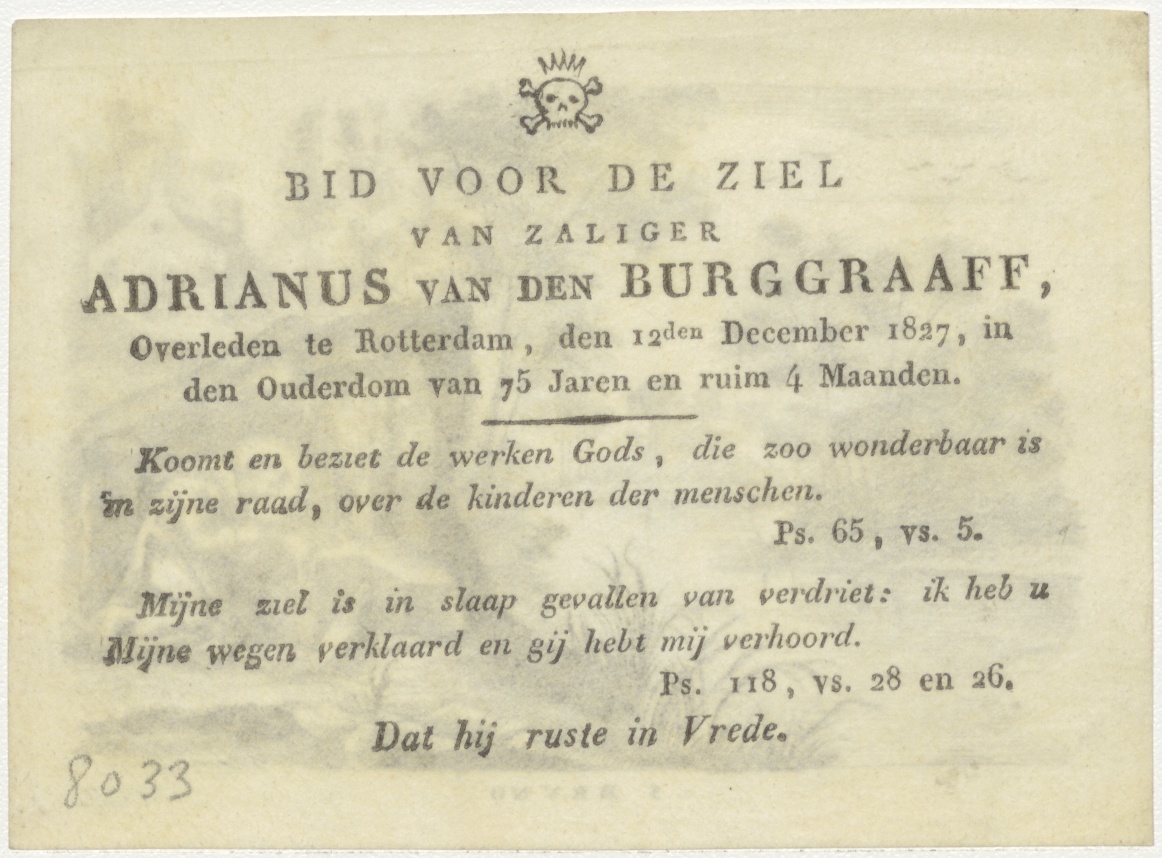 BID VOOR DE ZIEL
VAN ZALIGER
ADRIANUS VAN DEN BURGGRAAFF,
Overleden te Rotterdam, den 12den December 1827, in
den Ouderdom van 75 Jaren en ruim 4 Maanden.
Koomt en beziet de werken Gods, die zoo wonderbaar is
in zijne raad, over de kinderen der menschen.
Ps. 65, vs. 5.
Mijne ziel is in slaap gevallen van verdriet: ik heb u
Mijne wegen verklaard en gij hebt mij verhoord.
Ps. 118, vs. 28 en 26.
Dat hij ruste in Vrede.
8033